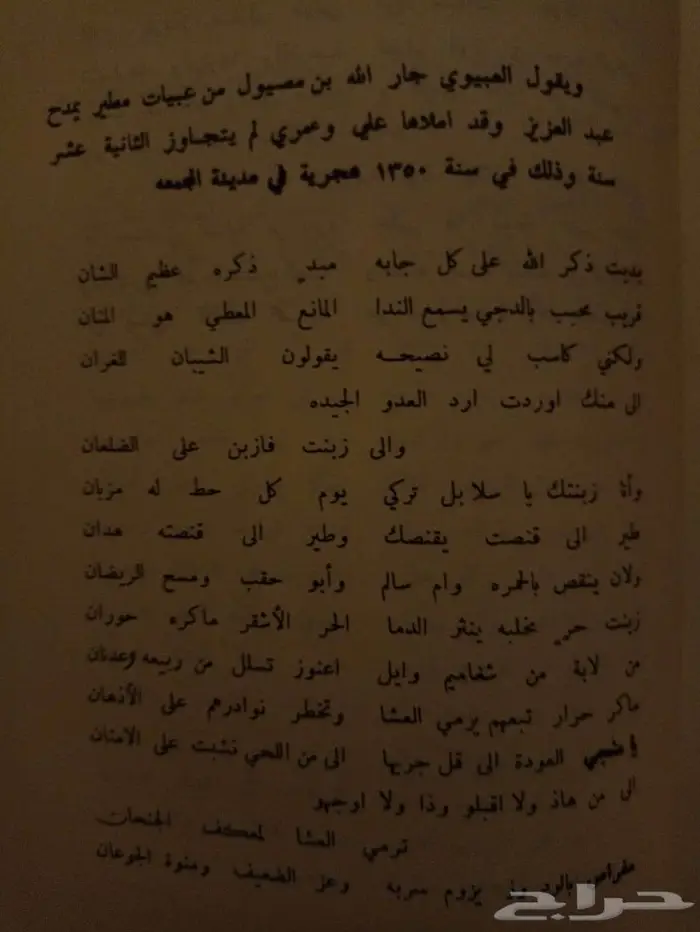 ويقول العبيوي جار الله بن مصيول من عبيات مطير يمدح
عبد العزيز وقد املاها علي وعمري لم يتجاوز الثانية عشر
سنة وذلك في سنة ١٣٥٠ هجرية في مدينة المجمعه
بديت ذكر الله على كل جابه مبدٍ ذكره عظيم الشان
قريب مجيب بالدجي يسمع الندا المانع المعطي هو المنان
ولكني كاسب لي نصيحه يقولون الشيبان للغران
الى منك اوردت ارد العدو الجيده
والى زبنت فازبن على الضلعان
وأنا زبنتك يا سلابل تركي يوم كل حط له مزبان
طير الى قنصت يقنصك وطير الى قنصته هدان
ولان ينقص بالحمره وام سالم وأبو حقب ومسح الريضان
زبنت حرٍ مخلبه ينثر الدما الحر الأشقر ماكره حوران
من لابة من شغاميم وايل اعنوز تسلل من ربيعه وعدنان
ماكر حرار تبعهم يرمي العشا وتخطر نوادرهم على الأذهان
يا منجي العودة الى قل جريها الى من اللحي نشبت على الامتان
الى من هاذ ولا اقبلو وذا ولا اوجهو
ترمي العشا لمعكف الجنحان
يزوم سربه وعز الضعيف ومنوة الجوعان
حراج